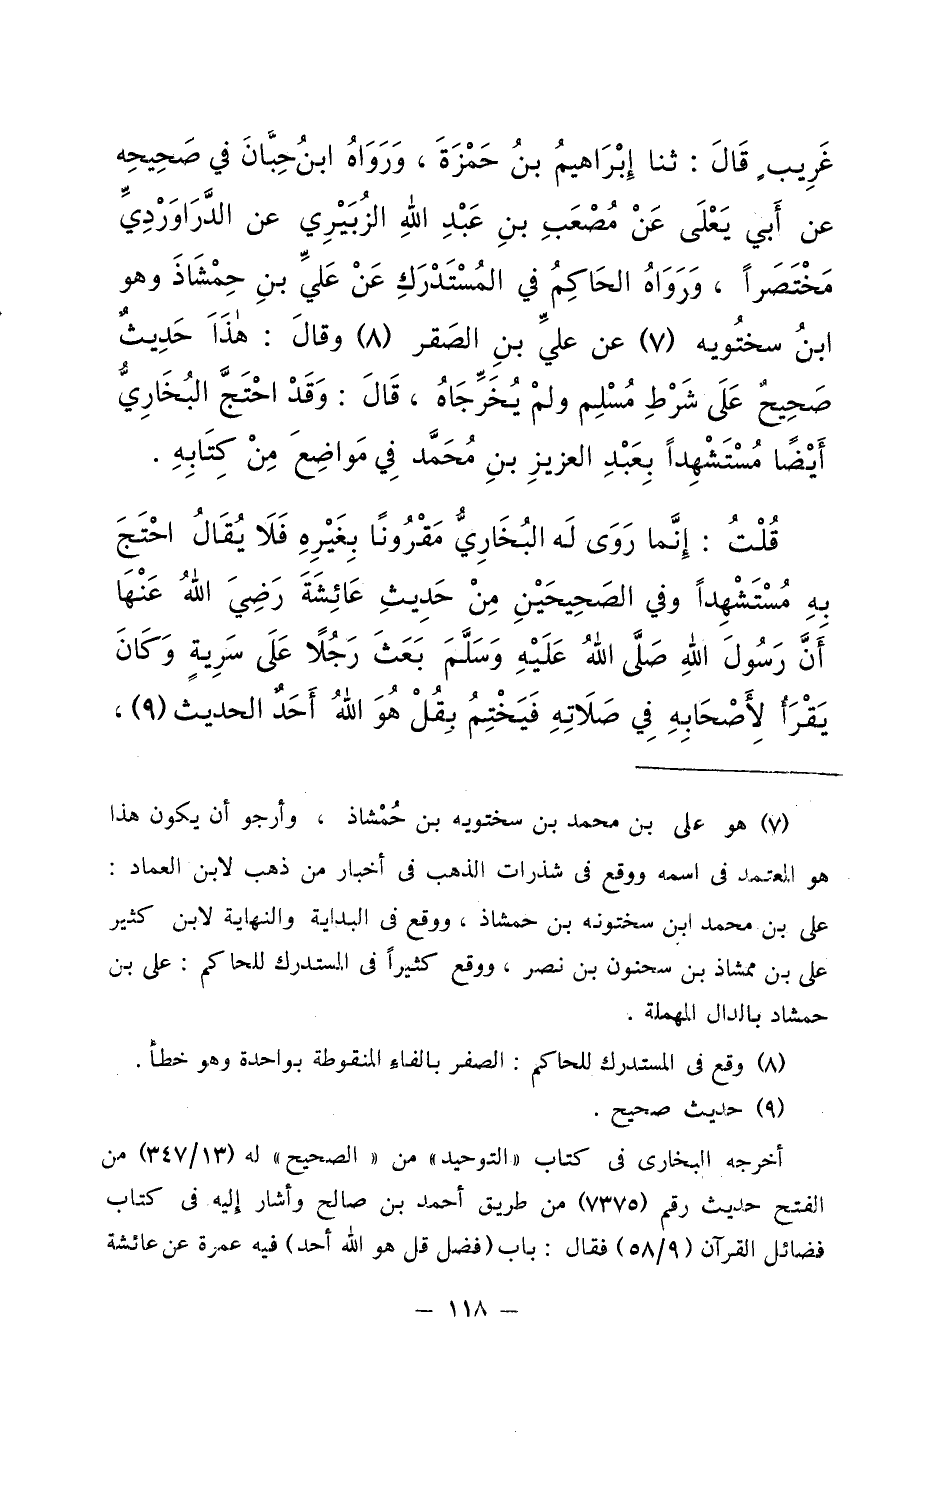 غَرِيبٍ قَالَ : ثنا إِبْرَاهيمُ بنُ حَمْزَةَ ، وَرَوَاهُ ابنُ حِبَّانَ في صَحِيحِه
عن أَبي يَعْلَى عَنْ مُصْعَبِ بنِ عَبْدِ اللهِ الزُبَيْرِي عن الدَّرَاوَرْدِيِّ
مَخْتَصَراً ، وَرَوَاهُ الحَاكِمُ في المُسْتَدْرَكِ عَنْ عَليِّ بنِ حِمْشَاذَ وهو
ابنُ سختُويه (٧) عن عليِّ بنِ الصَقر (٨) وقالَ : هٰذَا حَدِيثٌ
صَحِيحٌ عَلَى شَرْطِ مُسْلِم ولمْ يُخَرِّجَاهُ ، قَالَ : وَقَدْ احْتَجَّ البُخَارِيُّ
أَيْضًا مُسْتَشْهِداً بِعَبْدِ العزيزِ بنِ مُحَمَّد في مَواضِعَ مِنْ كِتَابِهِ .
قُلْتُ : إِنَّما رَوَى لَه البُخَارِيُّ مَقْرُونًا بِغَيْرِهِ فَلَا يُقَالُ احْتَجَ
بِهِ مُسْتَشْهِداً وفي الصَحِيحَيْنِ مِنْ حَدِيثِ عَائِشَةَ رَضِيَ اللهُ عَنْهَا
أَنَّ رَسُولَ اللهِ صَلَّى اللهُ عَلَيْهِ وَسَلَّمَ بَعَثَ رَجُلًا عَلَى سَرِيةٍ وَكَانَ
يَقْرَأُ لِأَصْحَابِهِ فِي صَلَاتِهِ فَيَخْتِمُ بِقُلْ هُوَ اللهُ أَحَدٌ الحديث (٩) ،
(٧) هو على بن محمد بن سختويه بن حُمْشاذ ، وأرجو أن يكون هذا
هو المعتمد فى اسمه ووقع فى شذرات الذهب فى أخبار من ذهب لابن العماد :
على بن محمد ابن سختونه بن حمشاذ ، ووقع فى البداية والنهاية لابن كثير
على بن ممشاذ بن سحنون بن نصر ، ووقع كثيراً فى المستدرك للحاكم : على بن
حمشاد بالدال المهملة .
(٨) وقع فى المستدرك للحاكم : الصفر بالفاء المنقوطة بواحدة وهو خطأ .
(٩) حديث صحيح .
أخرجه البخارى فى كتاب «التوحيد» من « الصحيح» له (٣٤٧/١٣) من
الفتح حديث رقم (٧٣٧٥) من طريق أحمد بن صالح وأشار إليه فى كتاب
فضائل القرآن (٥٨/٩) فقال : باب (فضل قل هو الله أحد) فيه عمرة عن عائشة
— ١١٨ —